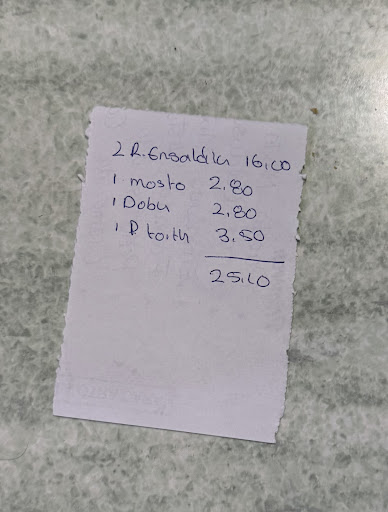 2 R. Ensaldilla 16,00
1 mosto 2,80
1 Dobu 2,80
1 P toith 3,50
25,10